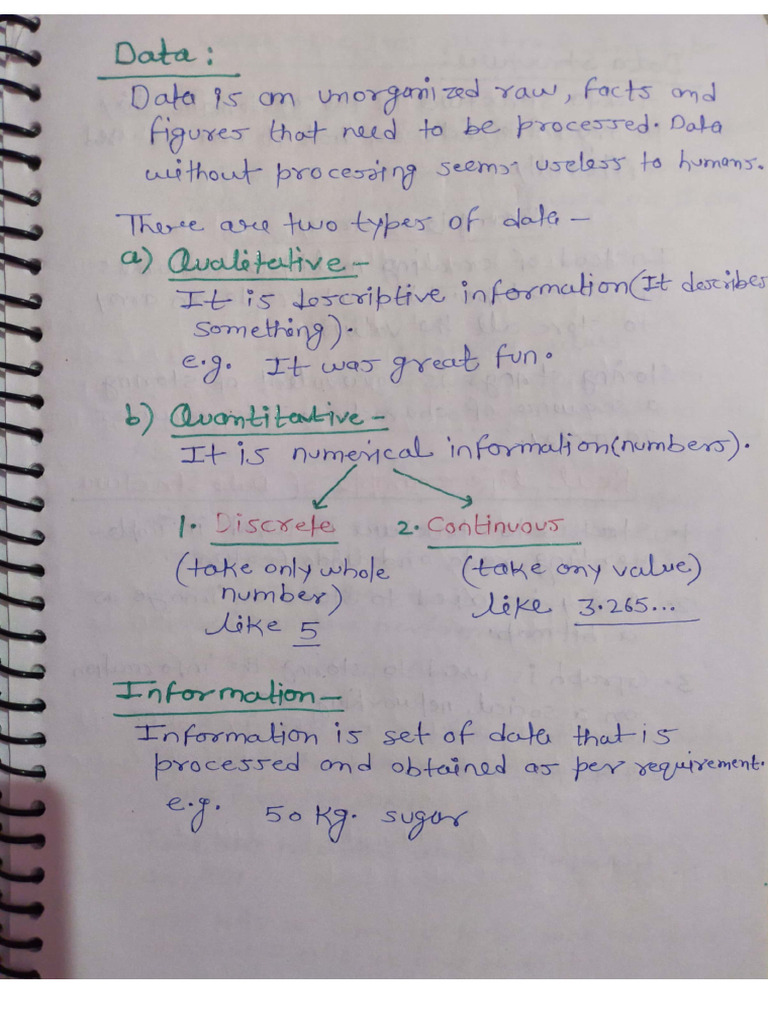 Data :
Data is an unorganized raw, facts and
figures that need to be processed. Data
without processing seems useless to humans.
There are two types of data -
a) Qualitative -
It is descriptive information (It describes
something).
e.g. It was great fun.
b) Quantitative -
It is numerical information (numbers).
1. Discrete 2. Continuous
(take only whole (take any value)
number) like 3.265...
like 5
Information -
Information is set of data that is
processed and obtained as per requirement.
e.g. 50 kg. sugar